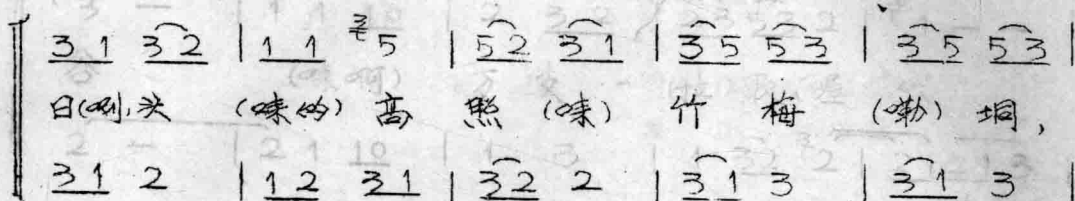 3 1 3 2 | 1 1 3 5 | 5 2 3 1 | 3 5 5 3 | 3 5 5 3 |
日(唎)头 (嗦的) 高 照 (嗦) 竹 梅 (嘞) 垌,
3 1 2 | 1 2 3 1 | 3 2 2 | 3 1 3 | 3 1 3 |